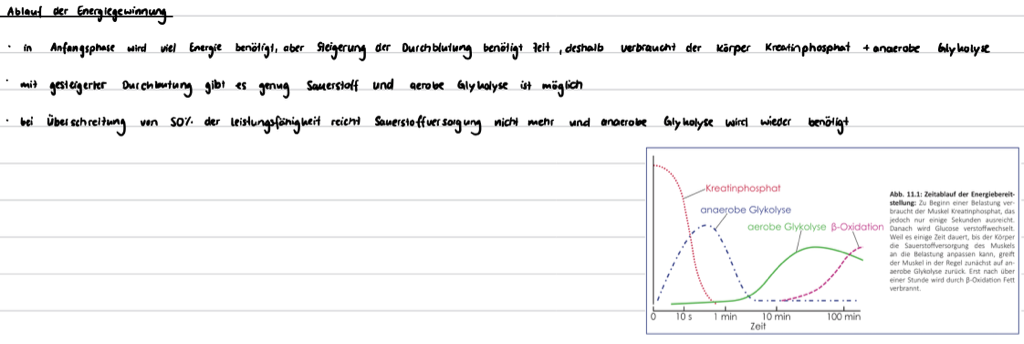 Ablauf der Energiegewinnung
· in Anfangsphase wird viel Energie benötigt, aber Steigerung der Durchblutung benötigt Zeit, deshalb verbraucht der Körper Kreatinphosphat + anaerobe Glykolyse
· mit gesteigerter Durchblutung gibt es genug Sauerstoff und aerobe Glykolyse ist möglich
· bei Überschreitung von 50% der Leistungsfähigkeit reicht Sauerstoffversorgung nicht mehr und anaerobe Glykolyse wird wieder benötigt
Kreatinphosphat
anaerobe Glykolyse
aerobe Glykolyse β-Oxidation
0 10 s 1 min 10 min 100 min
Zeit
Abb. 11.1: Zeitablauf der Energiebereit-
stellung: Zu Beginn einer Belastung ver-
braucht der Muskel Kreatinphosphat, das
jedoch nur einige Sekunden ausreicht.
Danach wird Glucose verstoffwechselt.
Weil es einige Zeit dauert, bis der Körper
die Sauerstoffversorgung des Muskels
an die Belastung anpassen kann, greift
der Muskel in der Regel zunächst auf an-
aerobe Glykolyse zurück. Erst nach über
einer Stunde wird durch β-Oxidation Fett
verbrannt.